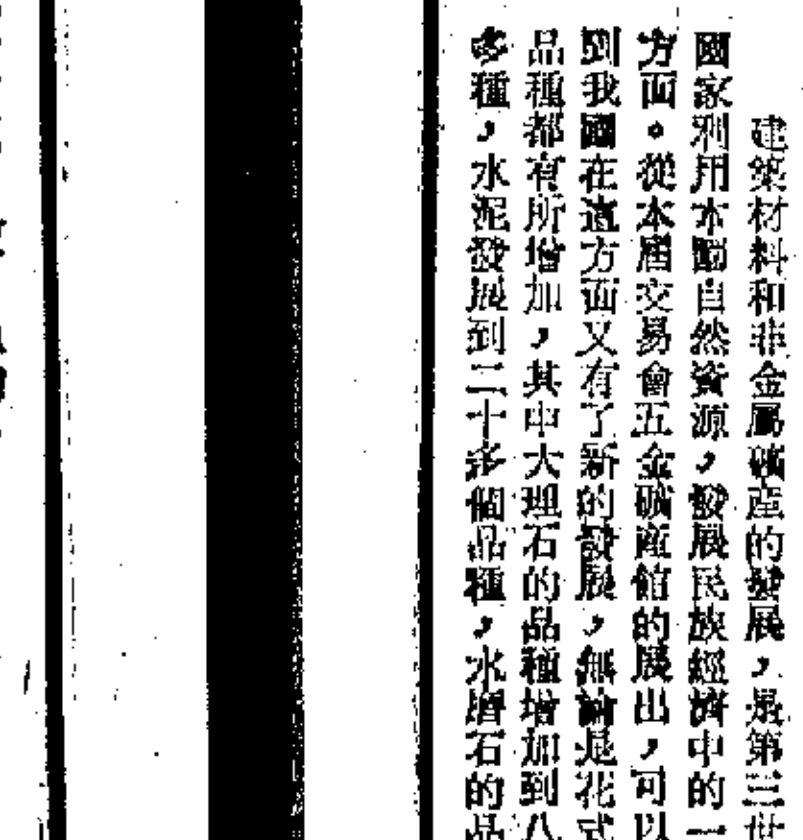 建築材料和非金屬礦產的發展，是第三世
國家利用本國自然資源，發展民族經濟中的一
方面。從本屆交易會五金礦產館的展出，可以
到我國在這方面又有了新的發展，無論是花式
品種都有所增加，其中大理石的品種增加到八
多種，水泥發展到二十多個品種，水磨石的品